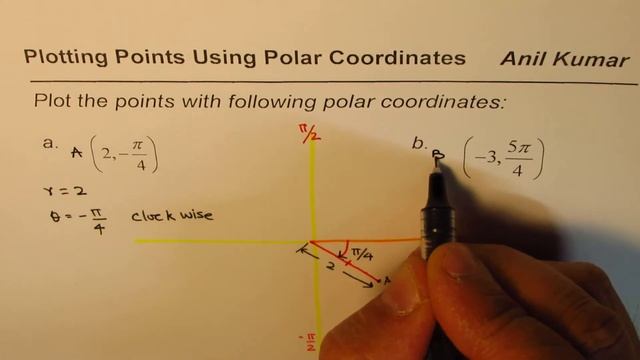 Plotting Points Using Polar Coordinates Anil Kumar
Plot the points with following polar coordinates:
π/2
a. A (2, -π/4)
b. B (-3, 5π/4)
r = 2
θ = -π/4 clockwise
π/4
2
A
-π/2